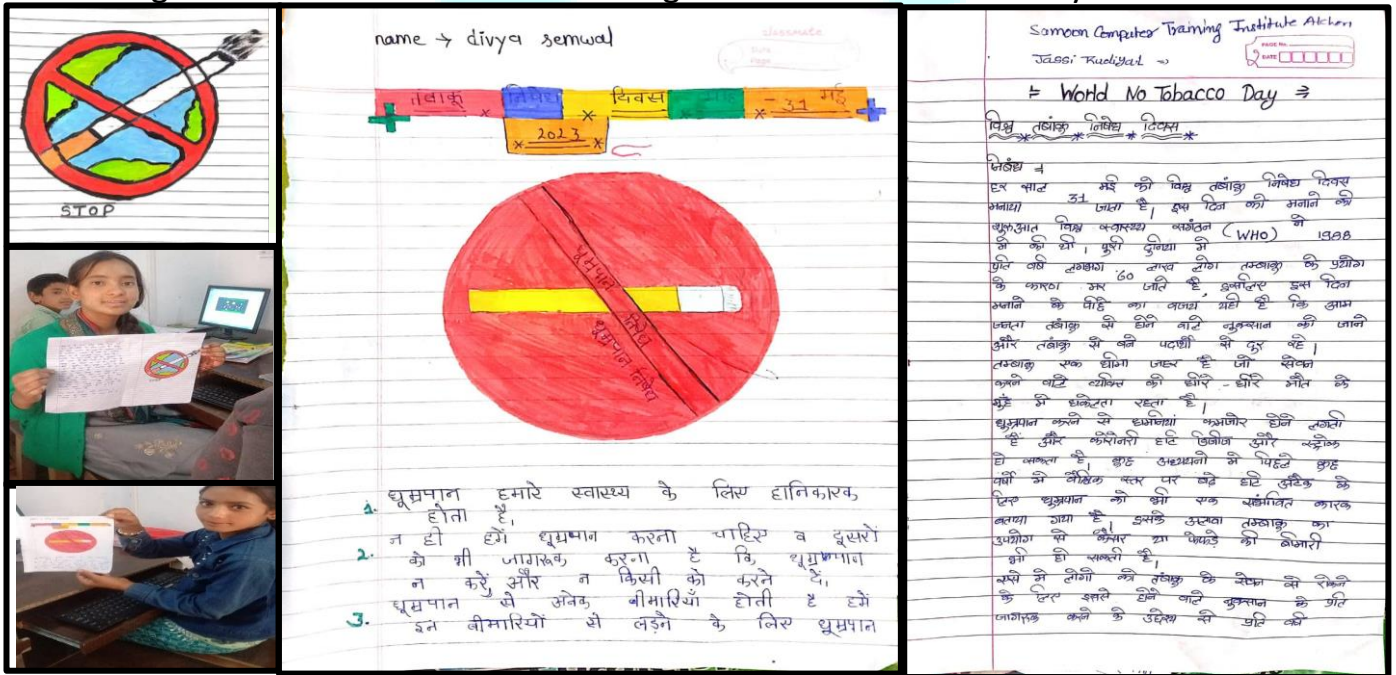 STOP
name → divya semwal
classmate
Date
Page
तंबाकू निषेध दिवस - 31 मई
2023
धूम्रपान निषेध
धूम्रपान निषेध
1. धूम्रपान हमारे स्वास्थ्य के लिए हानिकारक
होता है,
2. न ही हमें धूम्रपान करना चाहिए व दूसरों
को भी जागरूक करना है कि धूम्रपान
न करें और न किसी को करने दें,
3. धूम्रपान से अनेक बीमारियाँ होती है हमें
इन बीमारियों से लड़ने के लिए धूम्रपान
Samoon Computer Training Institute
Jassi Rudiyal →
PAGE No.
DATE
World No Tobacco Day
विश्व तंबाकू निषेध दिवस
निबंध
हर साल 31 मई को विश्व तंबाकू निषेध दिवस
मनाया जाता है, इस दिन को मनाने की
शुरुआत विश्व स्वास्थ्य संगठन (WHO) ने 1988
मे की थी, पुरी दुनिया मे
प्रति वर्ष लगभग 60 लाख लोग तम्बाकू के प्रयोग
के कारण मर जाते है, इसलिए इस दिन
मनाने के पीछे का वजय यही है कि आम
जनता तंबाकू से होने वाले नुकसान को जाने
और तंबाकू से बने पदार्थो से दुर रहे,
तम्बाकू एक धीमा जहर है जो सेवन
करने वाले व्यक्ति को धीरे-धीरे मौत के
मुँह मे धकेलता रहता है,
धुम्रपान करने से धमनियां कमजोर होने लगती
हैं और कोरोनरी हार्ट डिजीज और स्ट्रोक
हो सकता है, कुछ अध्ययनो मे पिछले कुछ
वर्षो मे वैश्विक स्तर पर बढे हार्ट अटैक के
लिए धुम्रपान को भी एक संभावित कारक
बताया गया है, इसके अलावा तम्बाकू का
उपयोग से कैंसर या फेफडे की बीमारी
भी हो सकती है,
ऐसे मे लोगो को तंबाकू के सेवन से रोकने
के लिए इससे होने वाले नुकसान के प्रति
जागरूक करने के उद्देश्य से प्रति वर्ष